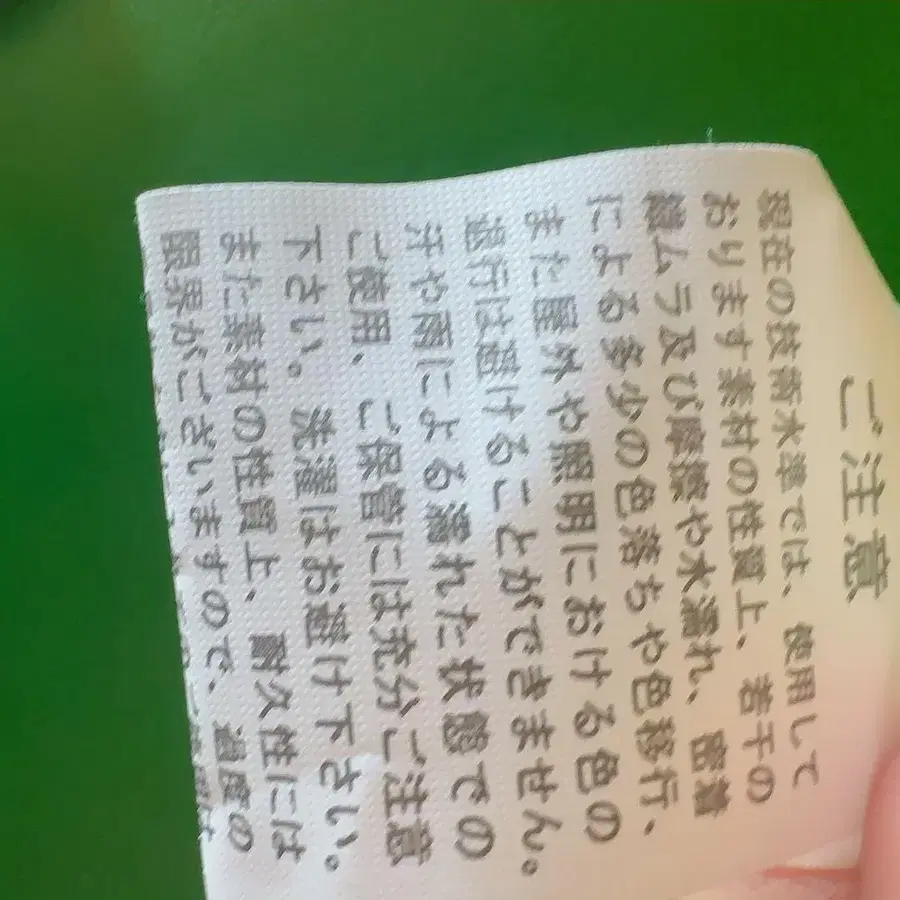 ご注意
現在の技術水準では、使用して
おります素材の性質上、若干の
織ムラ及び摩擦や水濡れ、密着
による多少の色落ちや色移行、
また屋外や照明における色の
退行は避けることができません。
汗や雨による濡れた状態での
ご使用、ご保管には充分ご注意
下さい。洗濯はお避け下さい。
また素材の性質上、耐久性には
限界がございますので、過度の